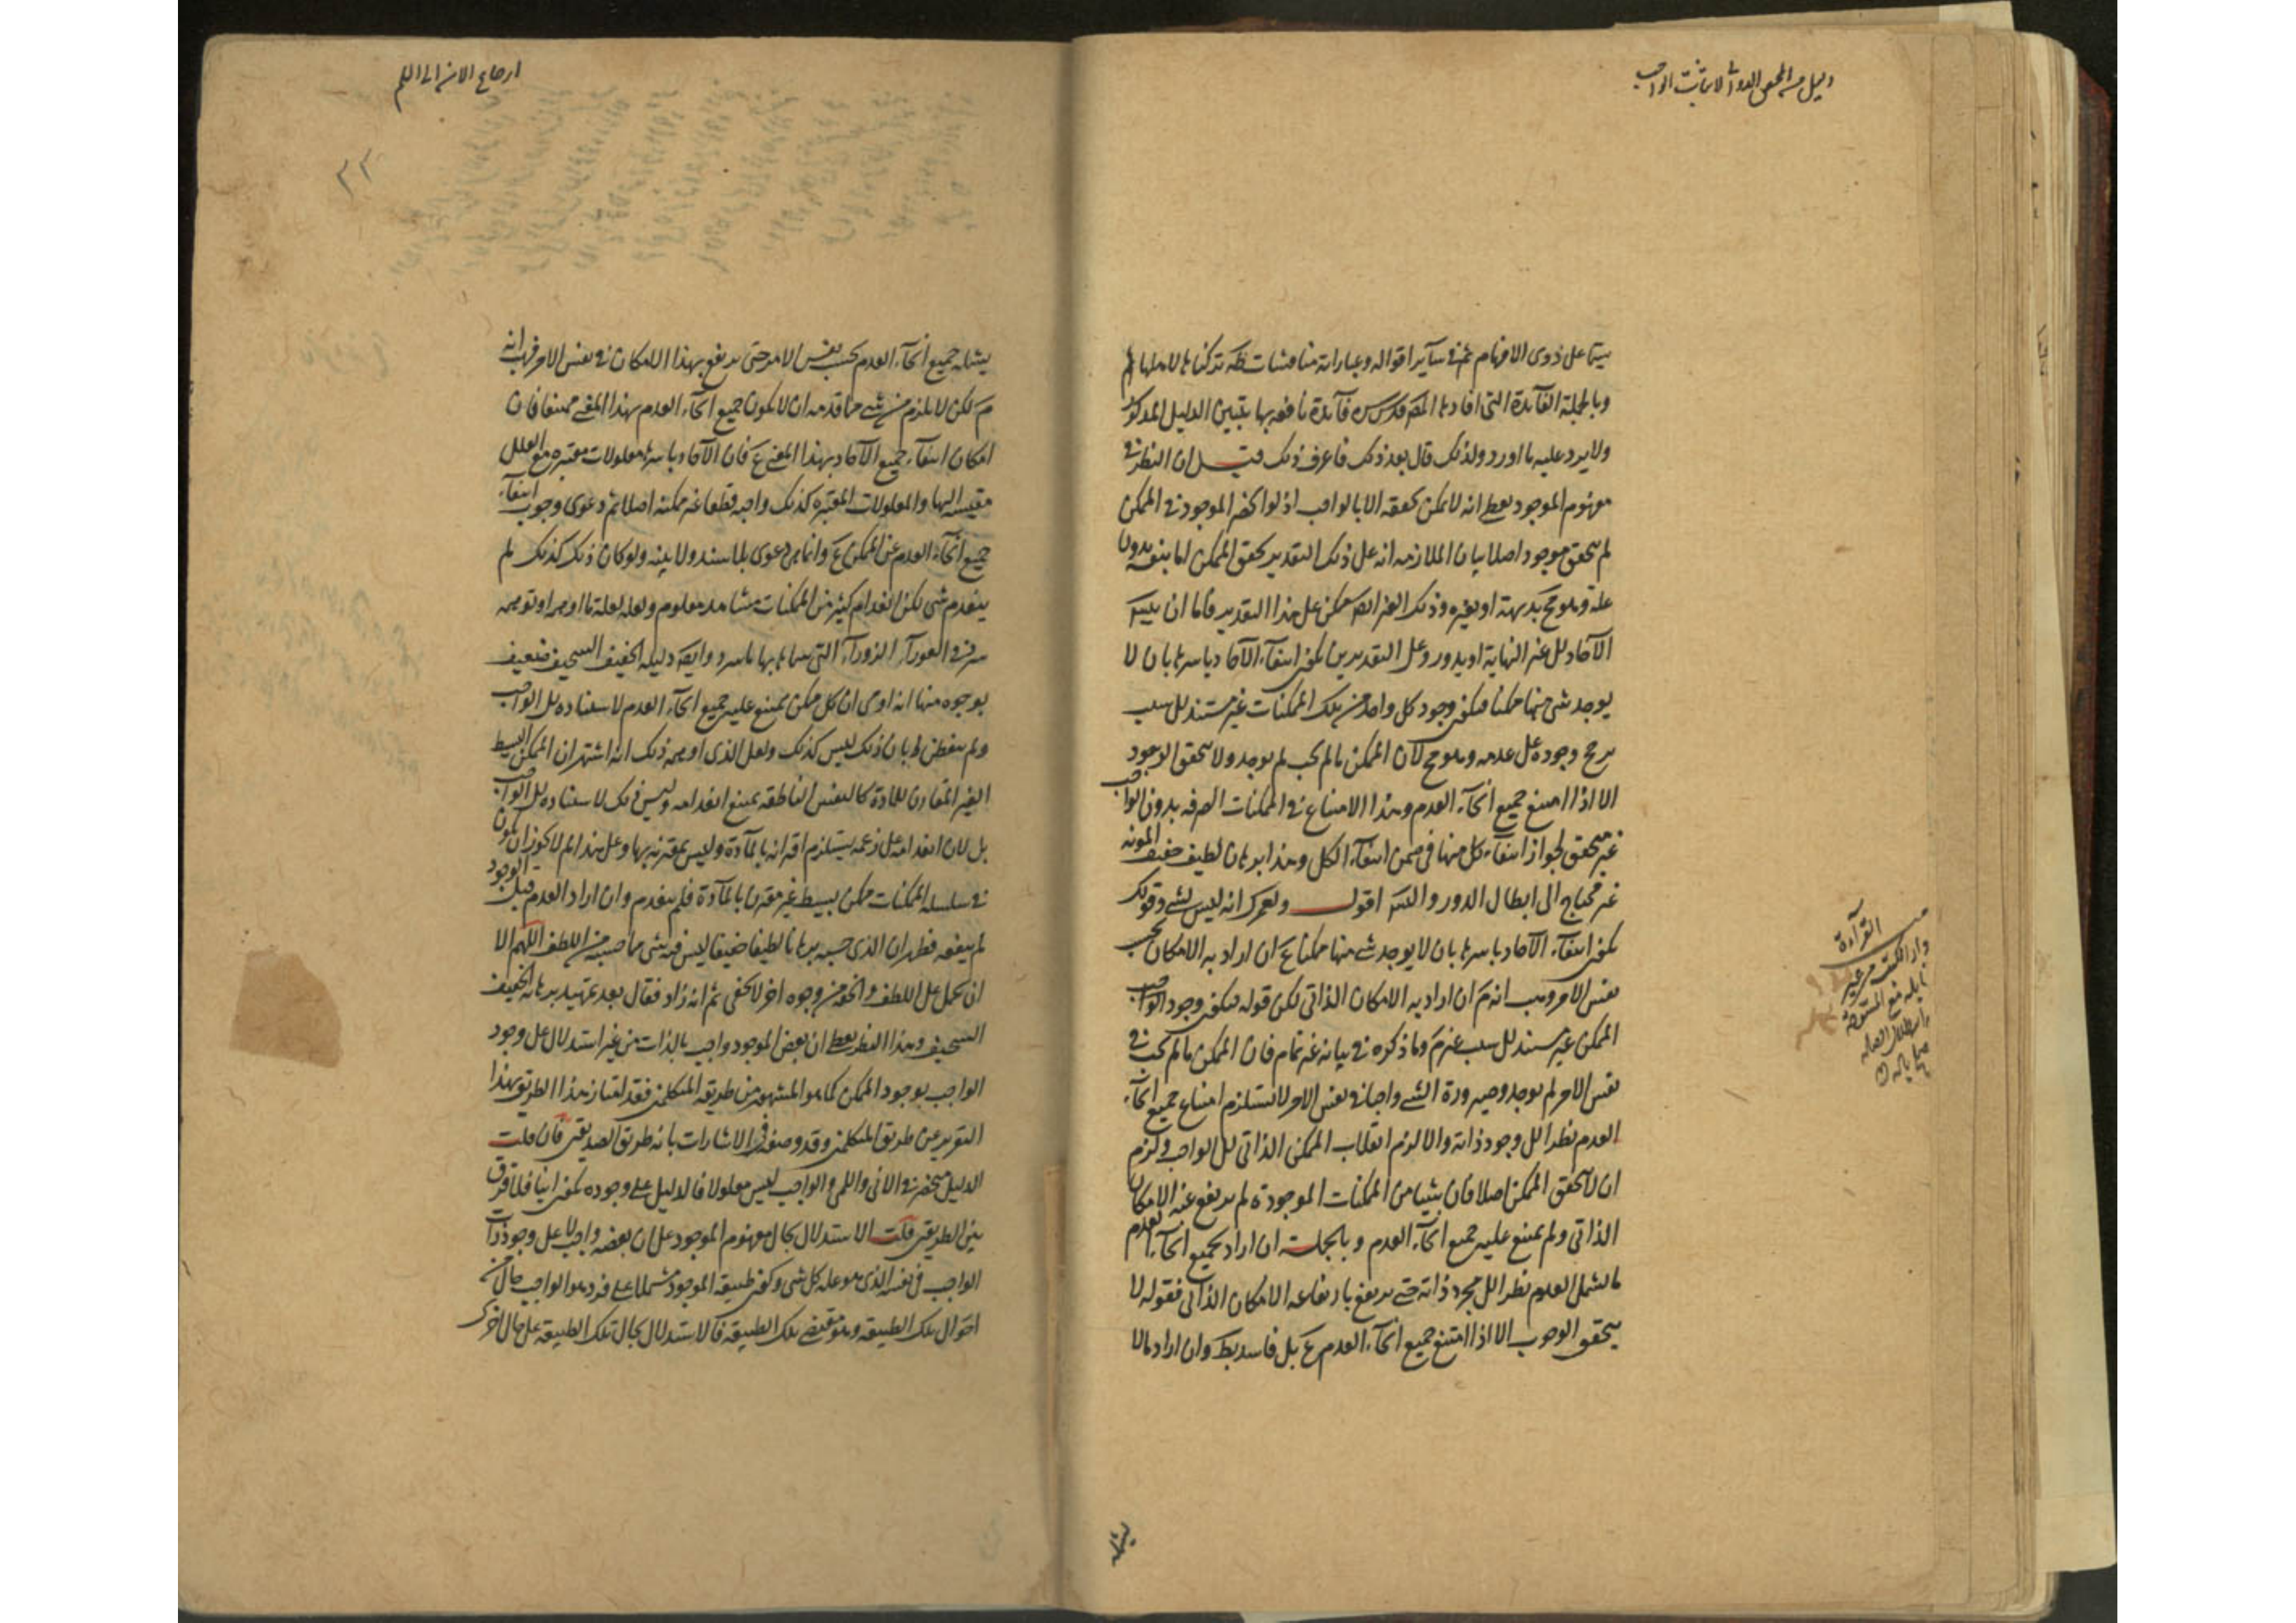 دليل من المحقق الدواني لاثبات الواجب
سيما على ذوى الافهام ثم فى ساير اقواله وعباراته مناقشات تركناها لاملها
وبالجملة الفائدة التى افادها المصـ قدس سره فائدة نافعة بها يتبين الدليل المذكور
ولا يرد عليه ما اورد ولذلك قال بعد ذلك فاعرف ذلك قيل ان النظر فى
مفهوم الموجود يعطى انه لا يمكن تحققه الا بالواجب اذ لو انحصر الموجود فى الممكن
لم يتحقق موجود اصلا بيان الملازمه انه على ذلك التقدير تحقق الممكن اما بنفسه بدون
علة وهو مح بديهة او بغيره وذلك الغير ايضا ممكن على هذا التقدير فاما ان يتسلسل
الآحاد الى غير النهاية او يدور وعلى التقديرين يمكن انتفاء الآحاد باسرها بان لا
يوجد شئ منها ممكنا فيكون وجود كل واحد من تلك الممكنات غير مستند الى سبب
يرجح وجوده على عدمه وهو مح لان الممكن ما لم يجب لم يوجد ولا يتحقق الوجود
الا اذا امتنع جميع انحاء العدم وهذا الامتناع فى الممكنات الصرفه بدون الواجب
غير متحقق لجواز انتفاء كل منها فى ضمن انتفاء الكل وهذا برهان لطيف خفيف المونه
غير محتاج الى ابطال الدور والتسـ اقول ولعمرك انه ليس بشئ وقولك
يمكن انتفاء الآحاد باسرها بان لا يوجد شئ منها ممكنا ع ان اراد به الامكان بحسب
نفس الامر وهب انه م ان اراد به الامكان الذاتى لكن قوله فيكون وجود الواجب
الممكن غير مستند الى سبب غير م وما ذكره فى بيانه غير تمام فان الممكن ما لم يجب فى
نفس الامر لم يوجد وصيرورة الشئ واجبا فى نفس الامر لا يستلزم امتناع جميع انحاء
العدم نظرا الى وجود ذاته والا لزم انقلاب الممكن الذاتى الى الواجب ولزم
ان لا يتحقق الممكن اصلا فان شيئا من الممكنات الموجودة لم يرتفع عنه الامكان
الذاتى ولم يمتنع عليه جميع انحاء العدم وبالجملة ان اراد بجميع انحاء العدم
ما يشمل العدم نظرا الى مجرد ذاته حتى يرتفع بارتفاعه الامكان الذاتى فقوله لا
يتحقق الوجوب الا اذا امتنع جميع انحاء العدم ع بل فاسد بط وان اراد ما لا
يشمله
القرآءة
ارجاع الان الى اللم
٣٢
يشمله جميع انحاء العدم بحسب نفس الامر حتى يرتفع بهذا الامكان فى نفس الامر فهب انه
م لكن لا يلزم من شئ مما قدمه ان لا يكون جميع انحاء العدم بهذا المعنى ممتنعا فان
امكان انتفاء جميع الآحاد بهذا المعنى ع فان الآحاد باسرها معلولات معتبره مع العلل
مقيسه اليها والمعلولات المعتبره كذلك واجبه قطعا غير ممكنه اصلا ثم دعوى وجوب انتفاء
جميع انحاء العدم عن الممكن ع وانما هى دعوى بلا سند ولا بينه ولو كان ذلك كذلك لم
ينعدم شئ لكن انعدام كثير من الممكنات مشاهد معلوم ولعله لعله ما اوهمه او توهمه
سرى فى العوراء الزوراء التى سماها بها باسرد وايضا دليله الخفيف السخيف ضعيف
بوجوه منها انه ادعى ان كل ممكن يمتنع عليه جميع انحاء العدم لاستناده الى الواجب
ولم يتفطن بان ذلك ليس كذلك ولعل الذى اوهمه ذلك انه اشتهر ان الممكن البسيط
الغير المقارن للمادة كالنفس الناطقه يمتنع انعدامه وليس ذلك لاستناده الى الواجب
بل لان انعدامه على زعمه يستلزم اقترانه بالمآدة وليس بمقترنه بها وعلى هذا لم لا يجوز ان يكون
فى سلسله الممكنات ممكن بسيط غير مقترن بالمآدة فلم ينعدم وان اراد العدم قبل الوجود
لم ينفعه فظهر ان الذى حسبه برهانا لطيفا خفيفا ليس فيه شئ مما حسبه من اللطف اللهم الا
ان يحمل على اللطف والخفة من وجوه اخر لا تخفى ثم انه زاد فقال بعد تمهيد برهانه الخفيف
السخيف وهذا النظر يعطى ان بعض الموجود واجب بالذات من غير استدلال على وجود
الواجب بوجود الممكن كما هو المشهور من طريقه المتكلمين فقد امتاز هذا الطريق بهذا
التقرير عن طريق المتكلمين وقد وصفه فى الاشارات بانه طريق الصديقين فان قلت
الدليل منحصر فى الانى واللمى والواجب ليس معلولا فالدليل على وجوده يكون انيا فلا فرق
بين الطريقين قلت الاستدلال بحال مفهوم الموجود على ان بعضه واجب لا على وجود ذات
الواجب فى نفسه الذى هو علة كل شئ وكون طبيعة الموجود مشتملا على فرد هو الواجب حال من
احوال تلك الطبيعه وهو مقتضى تلك الطبيعه فالاستدلال بحال تلك الطبيعه على حال اخرى